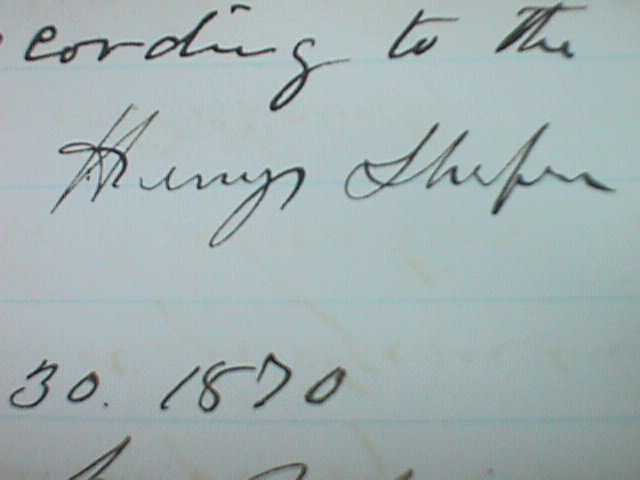 cording to the
Henry Shafer
30. 1870